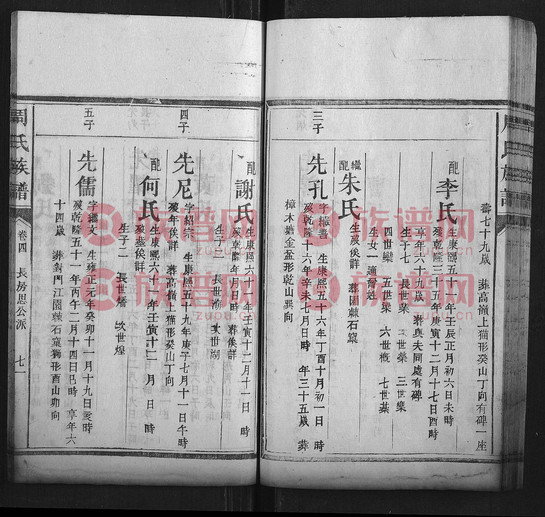 壽七十九歲 葬高嶺上猫形癸山丁向有碑一座
配李氏 生康熙五十一年壬辰正月初六日未時
歿乾隆三十五年庚寅十二月十七日酉時
享年六十九歲 葬與夫同處有碑
生子七 長世榮 三世樂
四世 五世 六世 七世
生女一適曾姓
繼配朱氏 生歿俟詳 葬園
三子
先孔 字 生康熙五十六年丁酉十月初一日 時
歿乾隆十六年辛未七月日時 年三十五歲 葬
樟木塘金盆形乾山巽向
配謝氏 生康熙六十一年壬寅十二月十一日 時
歿乾隆年月日時 葬俟詳
生子二 長世 次世湖
四子
先尼 字紹宗 生康熙五十九年庚子七月十一日午時
歿年俟詳 葬高嶺上猫形癸山丁向
配何氏 生康熙六十一年壬寅十二月日時
歿葬俟詳
生子二 長世 次世煌
五子
先儒 字繼文 生雍正元年癸卯十一月十九日亥時
歿乾隆五十一年丙午二月十四日巳時 享年六
十四歲 葬對門江園 石窩獅形酉山卯向
周氏族譜
卷四 長房思公派 七一